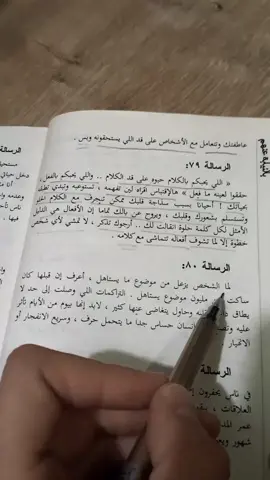 عاطفتك وتتعامل مع الأشخاص على قد اللي يستحقونه وبس .
الرسالة ٧٩:
« اللي يحبكم بالكلام حبوه على قد الكلام .. واللي يحبكم بالفعل ،
حققوا لعينه ما فعل » هالإقتباس اقراه لين تفهمه ، تستوعبه وتبدي تطبقه
بحياتك ! أحيانا بسبب سذاجة قلبك ممكن تنجرف مع الكلام
وتستسلم بشعورك وقلبك ، ويروح عن بالك تماما إن الأفعال هي الدليل
الأمثل لكل كلمة حلوة انقالت لك .. أرجوك تذكر ، لا تمشي لأي شخص
خطوة إلا لما تشوف أفعاله تتماشى مع كلامه .
الرسالة ٨٠:
لما الشخص يزعل من موضوع ما يستاهل ، أعرف إن قبلها كان
ساكت مليون موضوع يستاهل . التراكمات اللي وصلت إلى حد لا
يطاق وحاول يتغاضى عنها كثير ، لابد إنها بيوم من الأيام تأثر
عليه إنسان حساس جدا ما يتحمل حرف ، وسريع الانفجار أو
الانهيار
الرسالة
في ناس
العلاقات ،
عمر
شهور